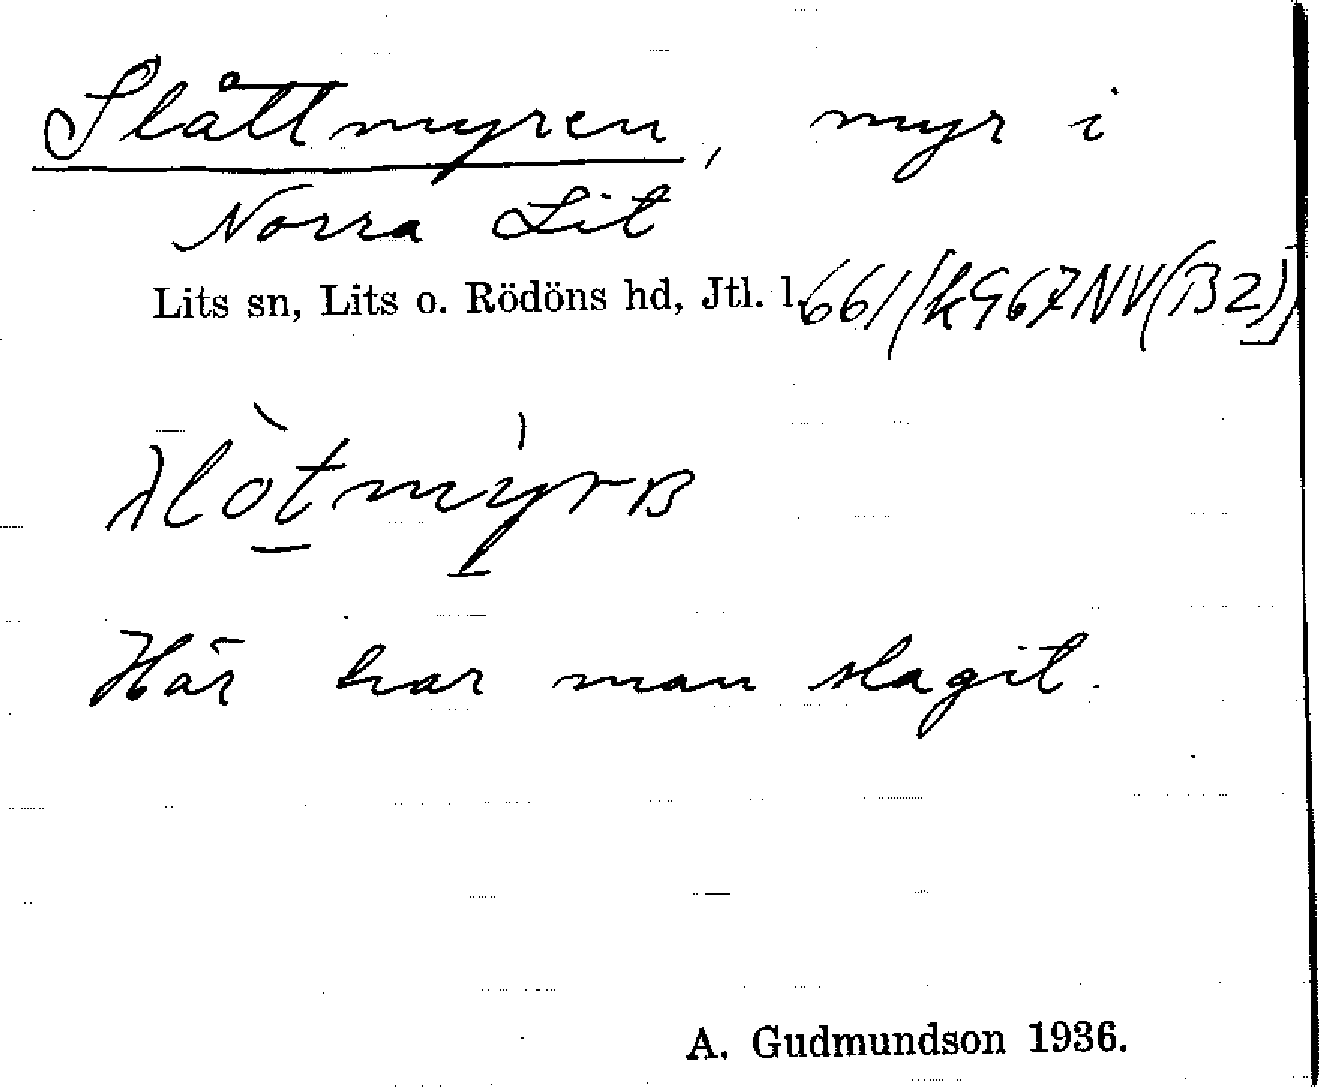 Slåttmyren, myr i
Norra Lit
Lits sn, Lits o. Rödöns hd, Jtl. l. 661/(k967NV(B2))
Här har man slagit.
A. Gudmundson 1936.